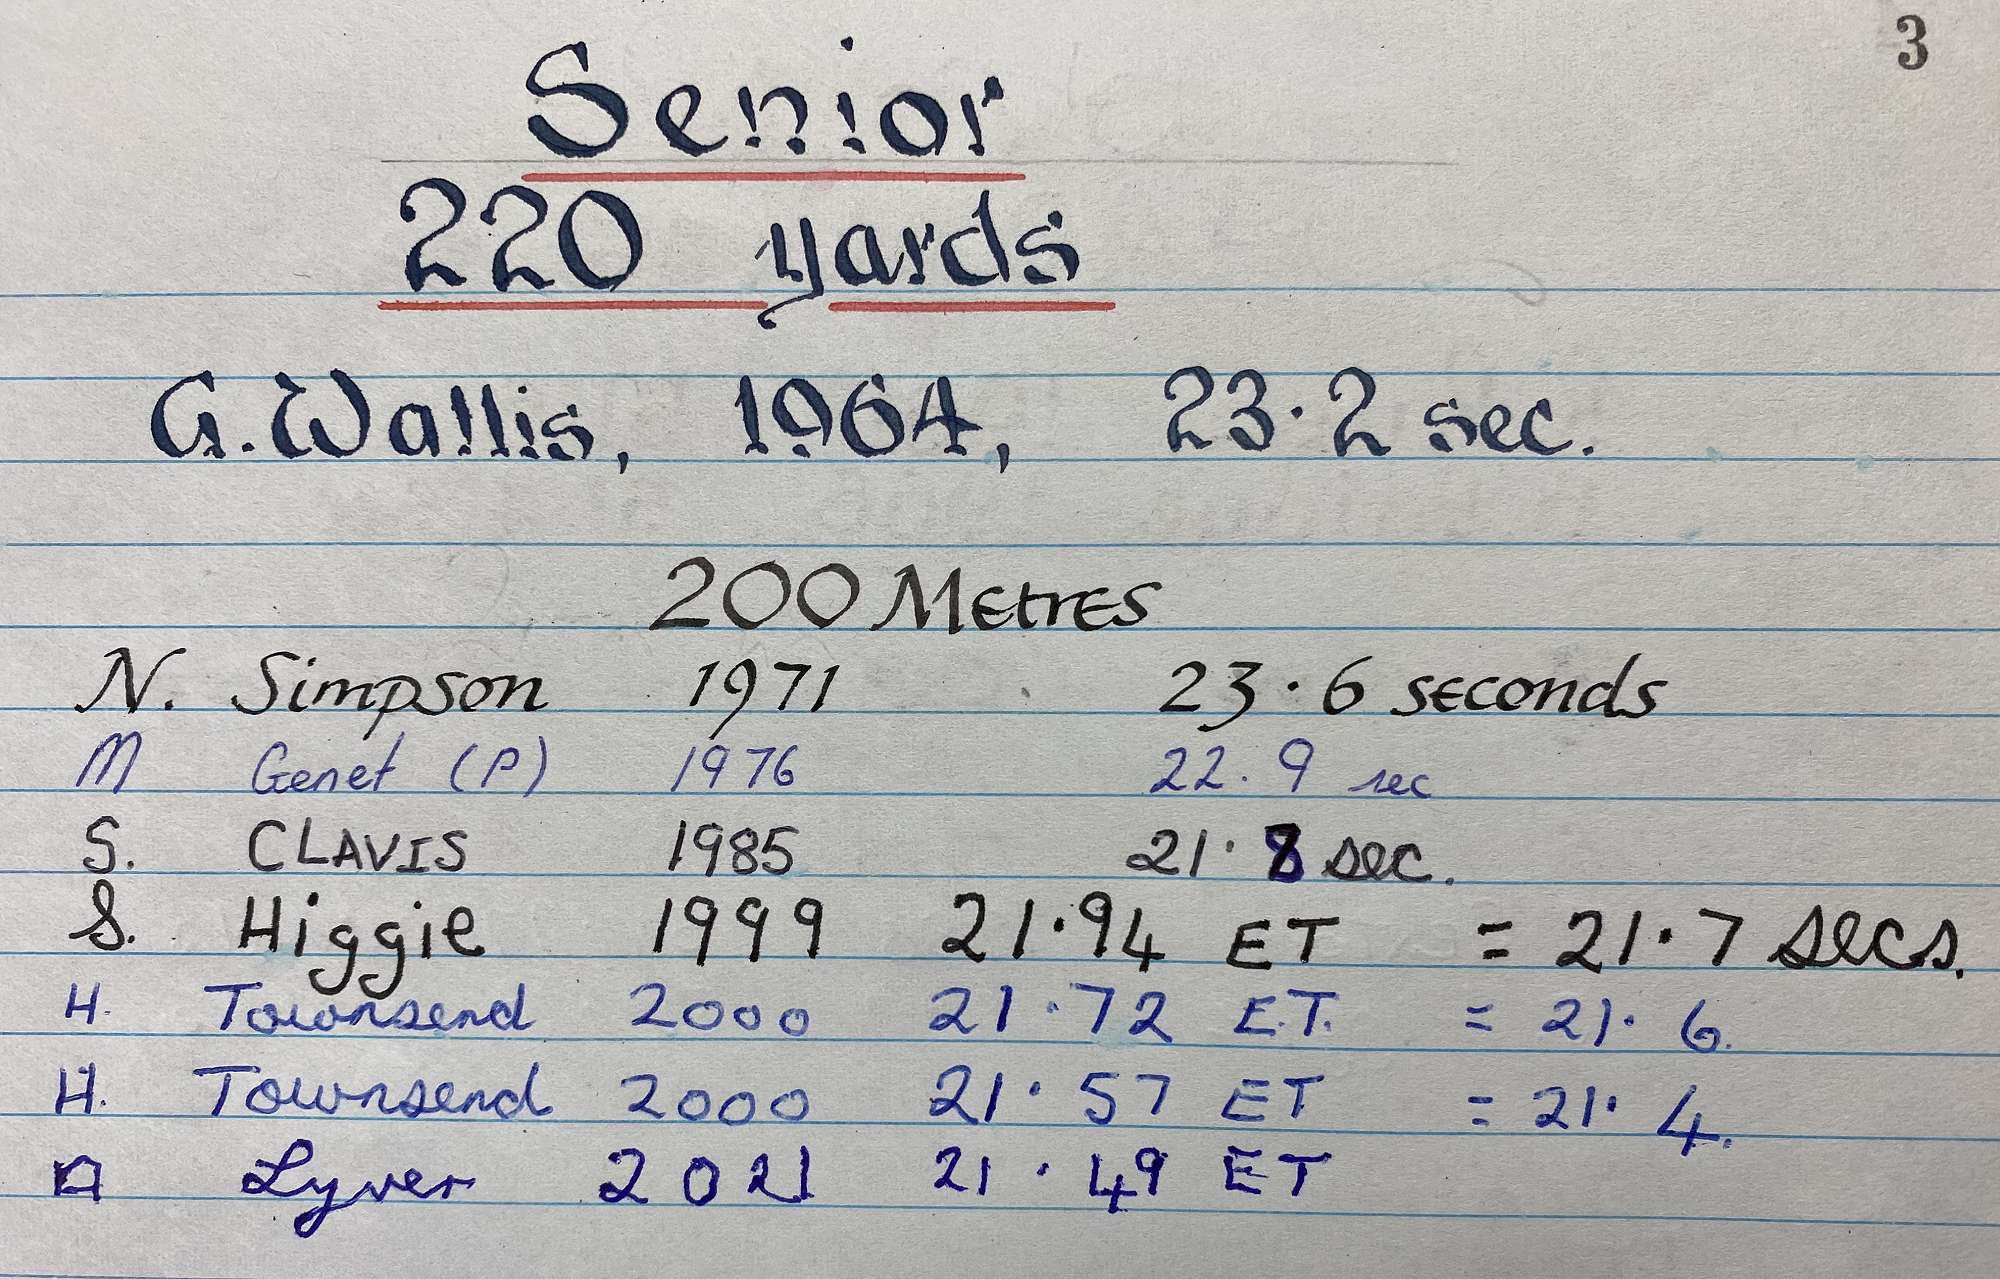 3
Senior
220 yards
G. Wallis, 1964, 23.2 sec.
200 Metres
N. Simpson 1971 23.6 seconds
M Genet (P) 1976 22.9 sec
S. CLAVIS 1985 21.8 sec.
S. Higgie 1999 21.94 ET = 21.7 secs.
H. Townsend 2000 21.72 E.T. = 21.6.
H. Townsend 2000 21.57 ET = 21.4.
A Lyver 2021 21.49 ET